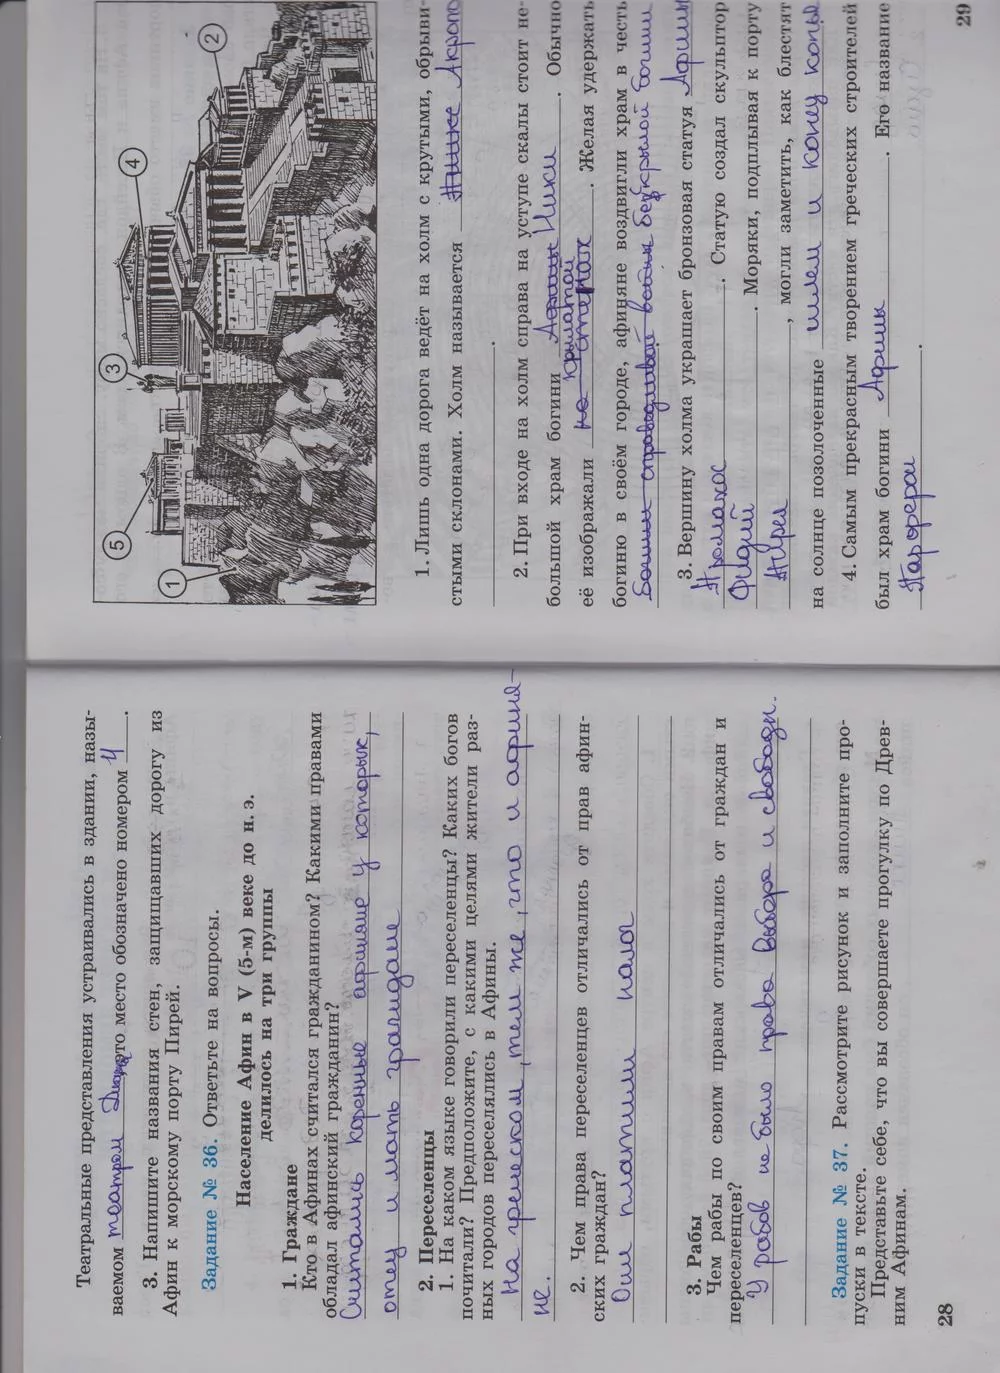 Театральные представления устраивались в здании, назы-
ваемом театром это место обозначено номером 4.
3. Напишите названия стен, защищавших дорогу из
Афин к морскому порту Пирей.
Задание № 36. Ответьте на вопросы.
Население Афин в V (5-м) веке до н. э.
делилось на три группы
1. Граждане
Кто в Афинах считался гражданином? Какими правами
обладал афинский гражданин?
Считались коренные афиняне у которых,
отец и мать граждане
2. Переселенцы
1. На каком языке говорили переселенцы? Каких богов
почитали? Предположите, с какими целями жители раз-
ных городов переселялись в Афины.
На греческом, тем же, что и афиня-
не.
2. Чем права переселенцев отличались от прав афин-
ских граждан?
Они платили налог
3. Рабы
Чем рабы по своим правам отличались от граждан и
переселенцев?
У рабов не было права выбора и свободы.
Задание № 37. Рассмотрите рисунок и заполните про-
пуски в тексте.
Представьте себе, что вы совершаете прогулку по Древ-
ним Афинам.
28
5
1
3
4
2
1. Лишь одна дорога ведёт на холм с крутыми, обрыви-
стыми склонами. Холм называется Акропо
.
2. При входе на холм справа на уступе скалы стоит не-
большой храм богини Афины Ники. Обычно
крылатой
её изображали. Желая удержать
богиню в своём городе, афиняне воздвигли храм в честь
бескрылой богини
3. Вершину холма украшает бронзовая статуя Афины
Промахос. Статую создал скульптор
Фидий. Моряки, подплывая к порту
Пирей, могли заметить, как блестят
на солнце позолоченные шлем и конец копья
4. Самым прекрасным творением греческих строителей
был храм богини Афины. Его название
.
29